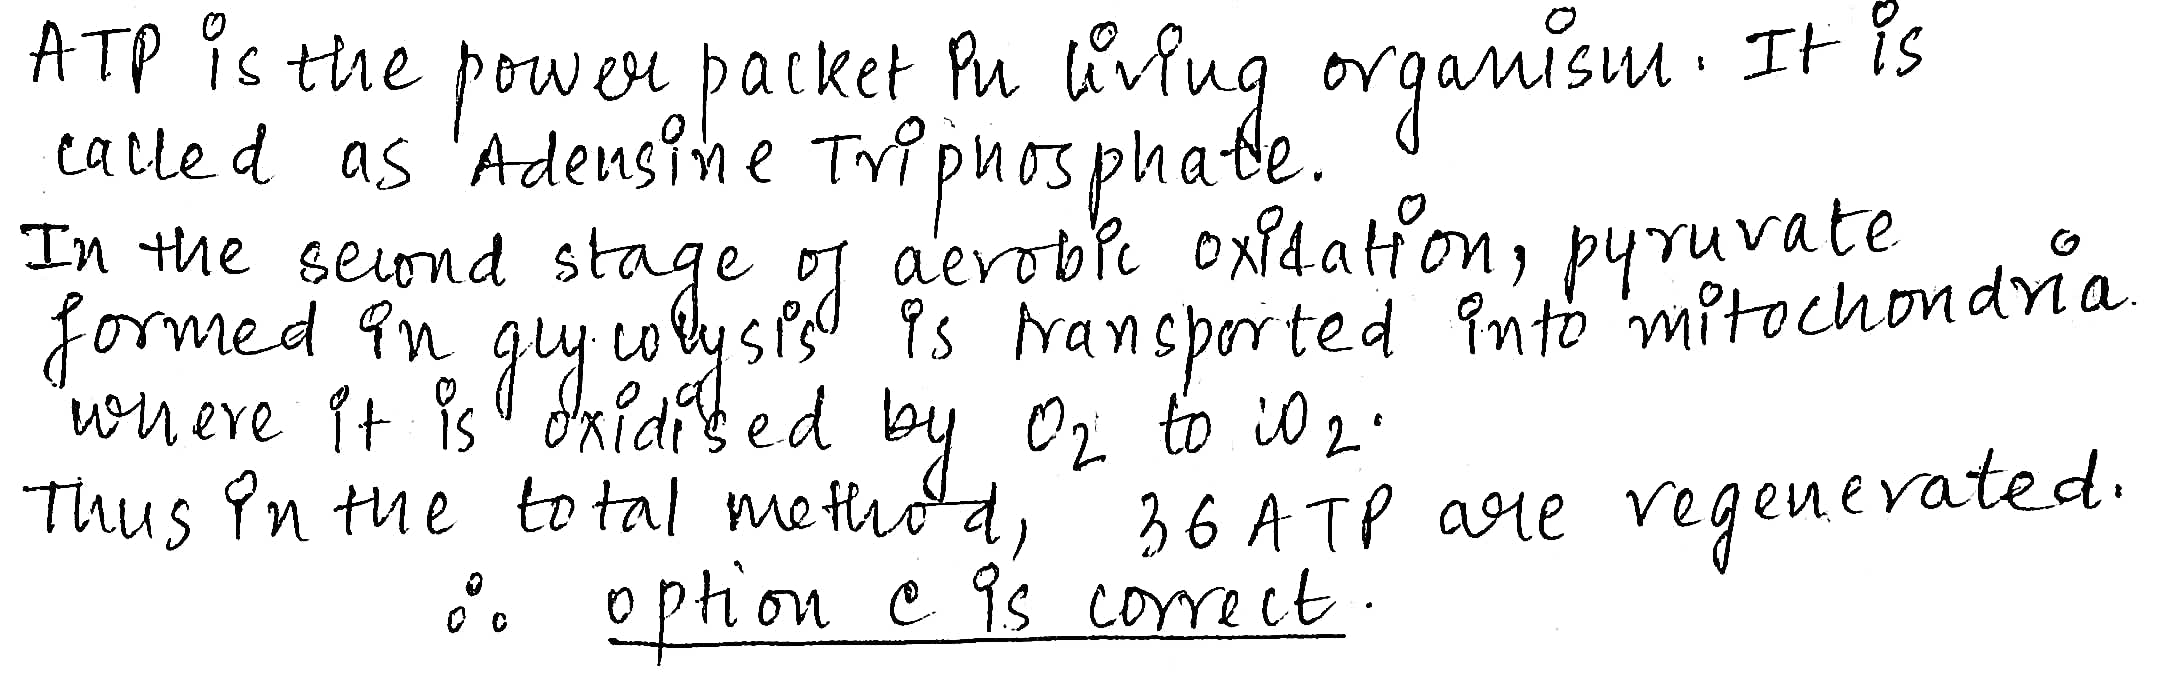 ATP is the power packet in living organism. It is
called as Adensine Triphosphate.
In the second stage of aerobic oxidation, pyruvate
formed in glycolysis is transported into mitochondria.
where it is oxidised by O2 to CO2.
Thus in the total method, 36 ATP are regenerated.
∴ option c is correct.